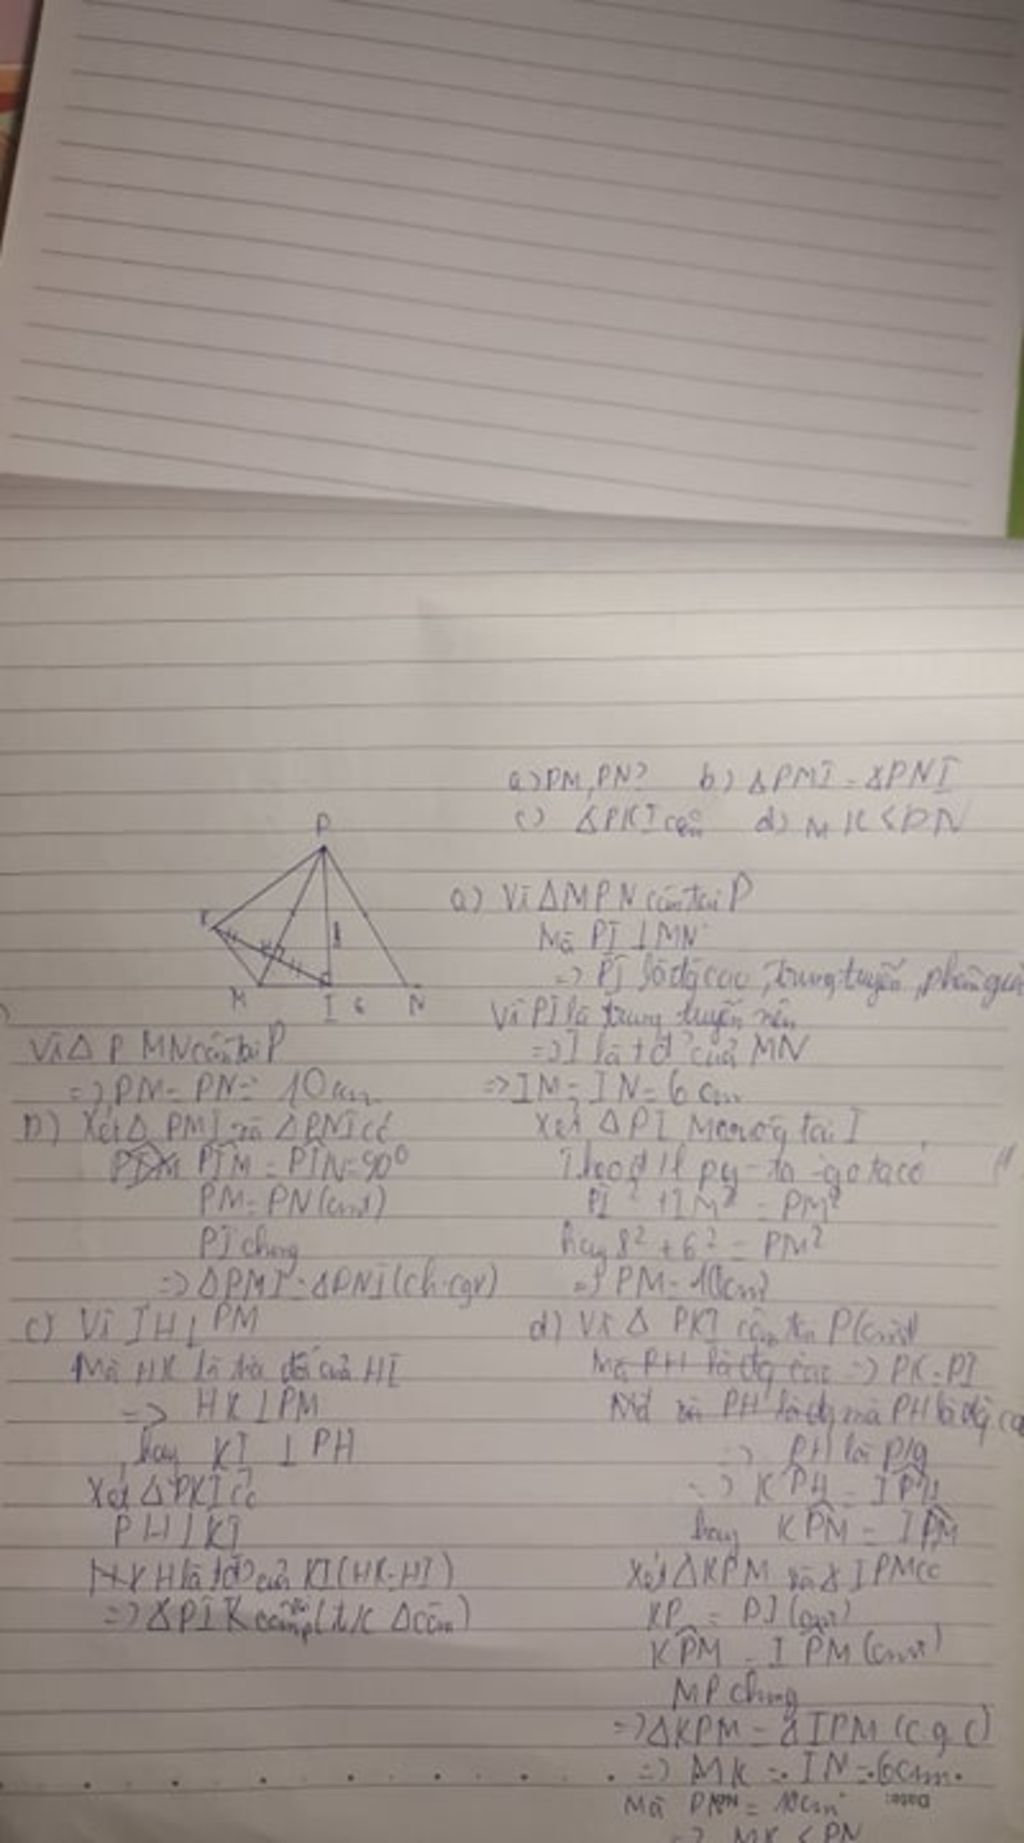 a) PM, PN? b) ΔPMI = ΔPNI
c) ΔPKI cân d) MK < PN
P
K
H
8
M
I
6
N
a) Vì ΔMPN cân tại P
Mà PI ⊥ MN
=> PI là đg cao, trung tuyến, phân giác
Vì PI là trung tuyến nên
=> I là tđ của MN
=> IM = IN = 6 cm
Xét ΔPIM vuông tại I
Theo đ/l py-ta-go ta có
PI² + IM² = PM²
hay 8² + 6² = PM²
=> PM = 10(cm)
Vì Δ PMN cân tại P
=> PM = PN = 10 cm
b) Xét Δ PMI và ΔPNI có
PIM = PIN = 90°
PM = PN (cmt)
PI chung
=> ΔPMI = ΔPNI (ch-cgv)
c) Vì IH ⊥ PM
Mà HK là tia đối của HI
=> HK ⊥ PM
hay KI ⊥ PH
Xét ΔPKI có
PH ⊥ KI
H là tđ của KI (HK = HI)
=> ΔPIK cân tại P (t/c Δ cân)
d) Vì Δ PKI cân tại P (cmt)
=> PK = PI
mà PH là đg cao
=> PH là p/g
=> KPH = IPH
hay KPM = IPM
Xét ΔKPM và ΔIPM có
KP = PI (cmt)
KPM = IPM (cmt)
MP chung
=> ΔKPM = ΔIPM (c.g.c)
=> MK = IN = 6cm.
Mà PN = 10cm
=> MK < PN
Date: